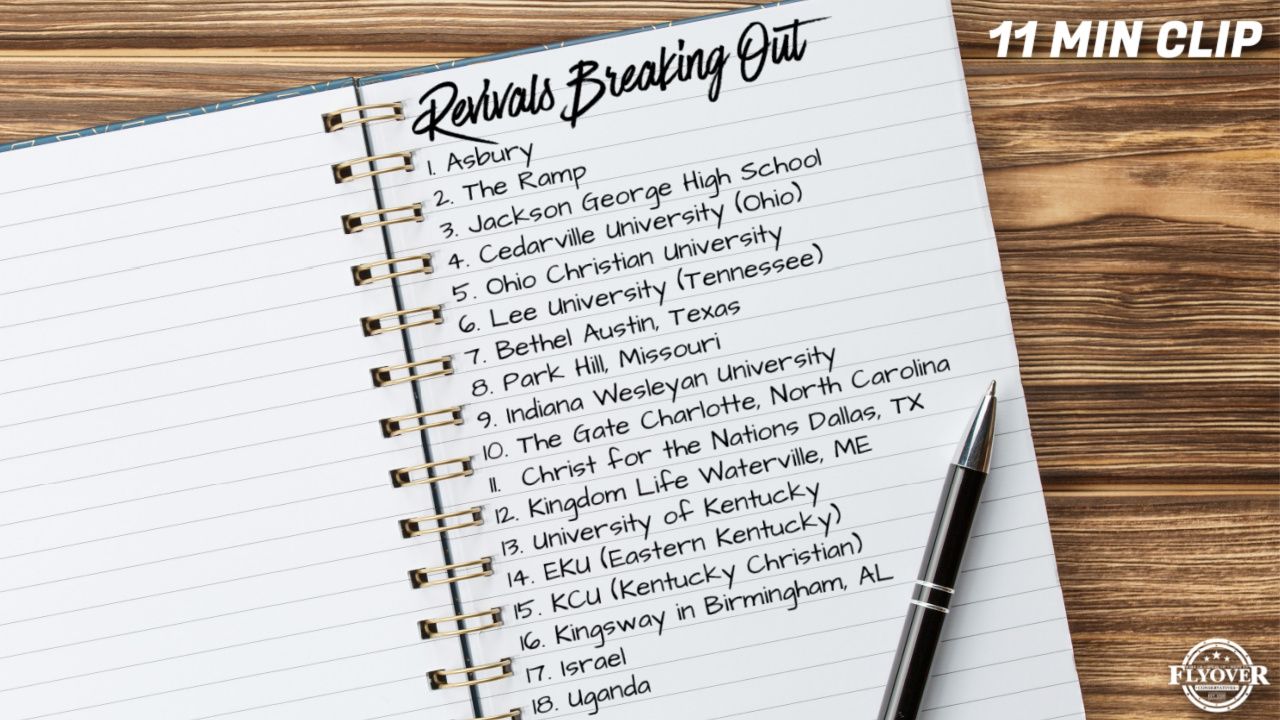 11 MIN CLIP
Revivals Breaking Out
1. Asbury
2. The Ramp
3. Jackson George High School
4. Cedarville University (Ohio)
5. Ohio Christian University
6. Lee University (Tennessee)
7. Bethel Austin, Texas
8. Park Hill, Missouri
9. Indiana Wesleyan University
10. The Gate Charlotte, North Carolina
11. Christ for the Nations Dallas, TX
12. Kingdom Life Waterville, ME
13. University of Kentucky
14. EKU (Eastern Kentucky)
15. KCU (Kentucky Christian)
16. Kingsway in Birmingham, AL
17. Israel
18. Uganda
FLYOVER
CONSERVATIVES